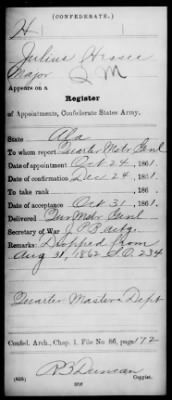 (CONFEDERATE.)
H
Julius Hessee
Major Q M
Appears on a
Register
of Appointments, Confederate States Army.
State Ala
To whom report Quarter Mstr Genl
Date of appointment Oct 24, 1861.
Date of confirmation Dec 24, 1861.
To take rank , 186 .
Date of acceptance Oct 31, 1861.
Delivered Qur Mstr Genl
Secretary of War J. P. B actg.
Remarks: Dropped from
Aug 31, 1862 S.O. 234
Quarter Masters Dept
Confed. Arch., Chap. 1, File No. 86, page 172
R B Duncan
Copyist.